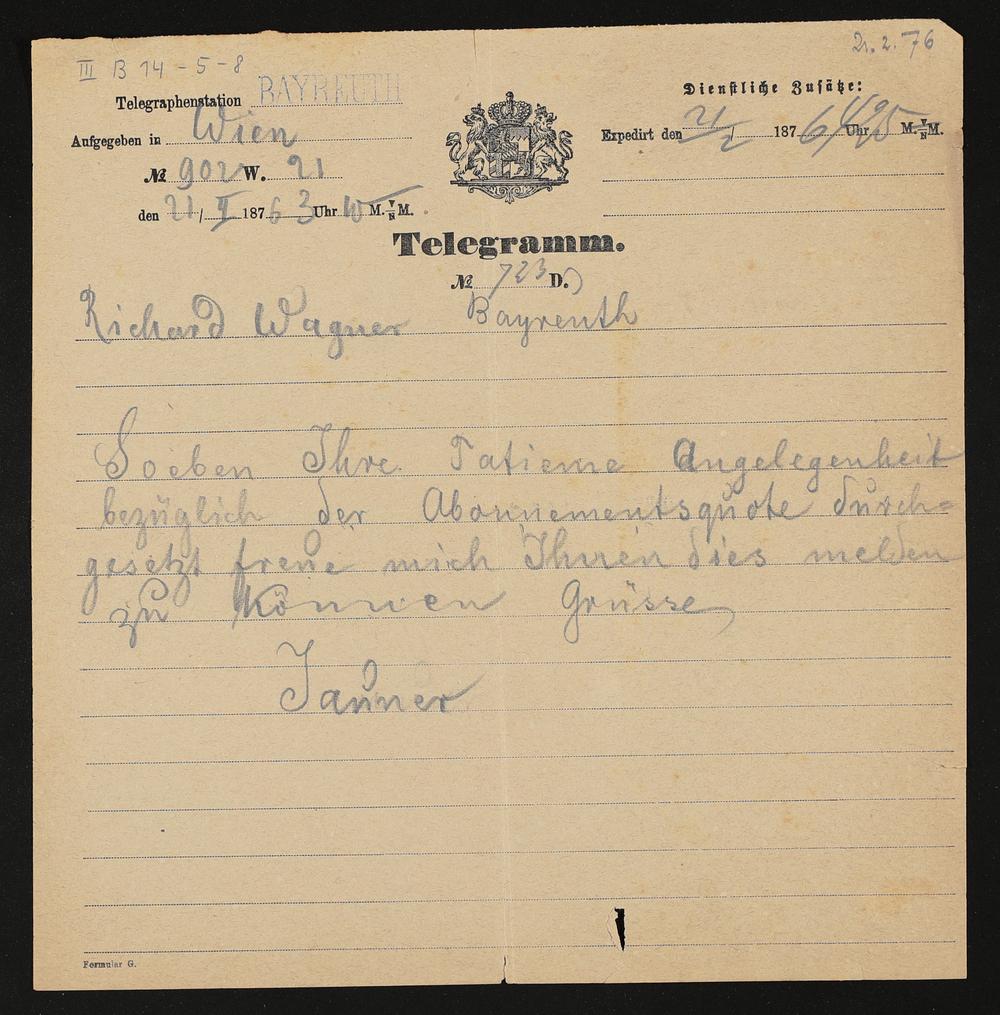 III B 14 - 5 - 8
21. 2. 76
Telegraphenstation BAYREUTH
Dienstliche Zusätze:
Aufgegeben in Wien
Expedirt den 21/2 1876 Uhr M. V/N M.
№ 902 W. 21
den 21/II 1876 3 Uhr 10 M. V/N M.
Telegramm.
№ 723 D.
Richard Wagner Bayreuth
Soeben Ihre Tatieme Angelegenheit
bezüglich der Abonnementsquote durch=
gesetzt freue mich Ihnen dies melden
zu können Grüsse
Jauner
Formular G.